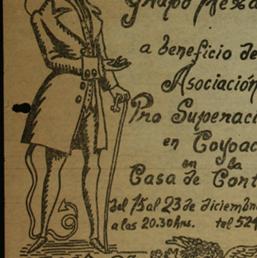 Grupo
a beneficio de
Asociación
Pro Superaci
en Coyoac
en la
Casa de Cort
del 15 al 23 de diciembre
a las 20.30 hrs. tel 524